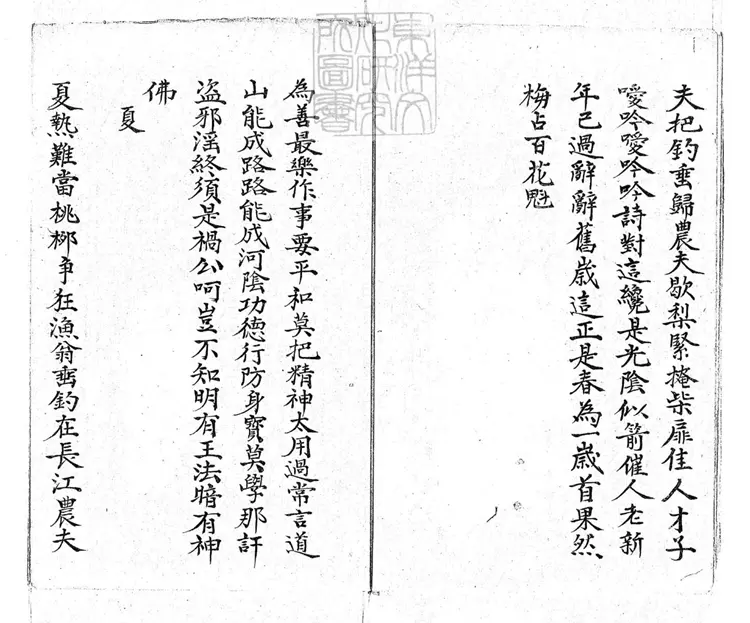 東洋文
化研究
所圖書
夫把釣垂歸農夫歇梨緊掩柴扉佳人才子
噯吟噯吟吟詩對這纔是光陰似箭催人老新
年已過辭辭舊歲這正是春為一歲首果然
梅占百花魁
為善最樂作事要平和莫把精神太用過常言道
山能成路路能成河陰功德行防身寶莫學那訐
盗邪淫終須是禍尒呵豈不知明有王法暗有神
佛
夏
夏熱難當桃柳争狂漁翁垂釣在長江農夫